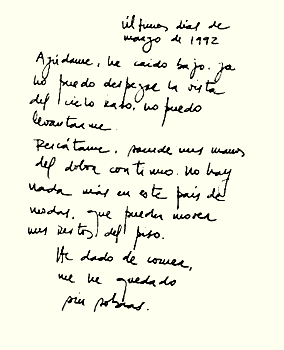 últimos días de
marzo de 1992
Ayúdame, he caído bajo. ya
no puedo despegar la vista
del cielo raso, no puedo
levantarme.
Rescátame, sacude mis manos
del dolor contimo. No hay
nada más en este país de
modas, que puedan mover
mis restos del piso.
He dado de comer,
me he quedado
sin sobras.